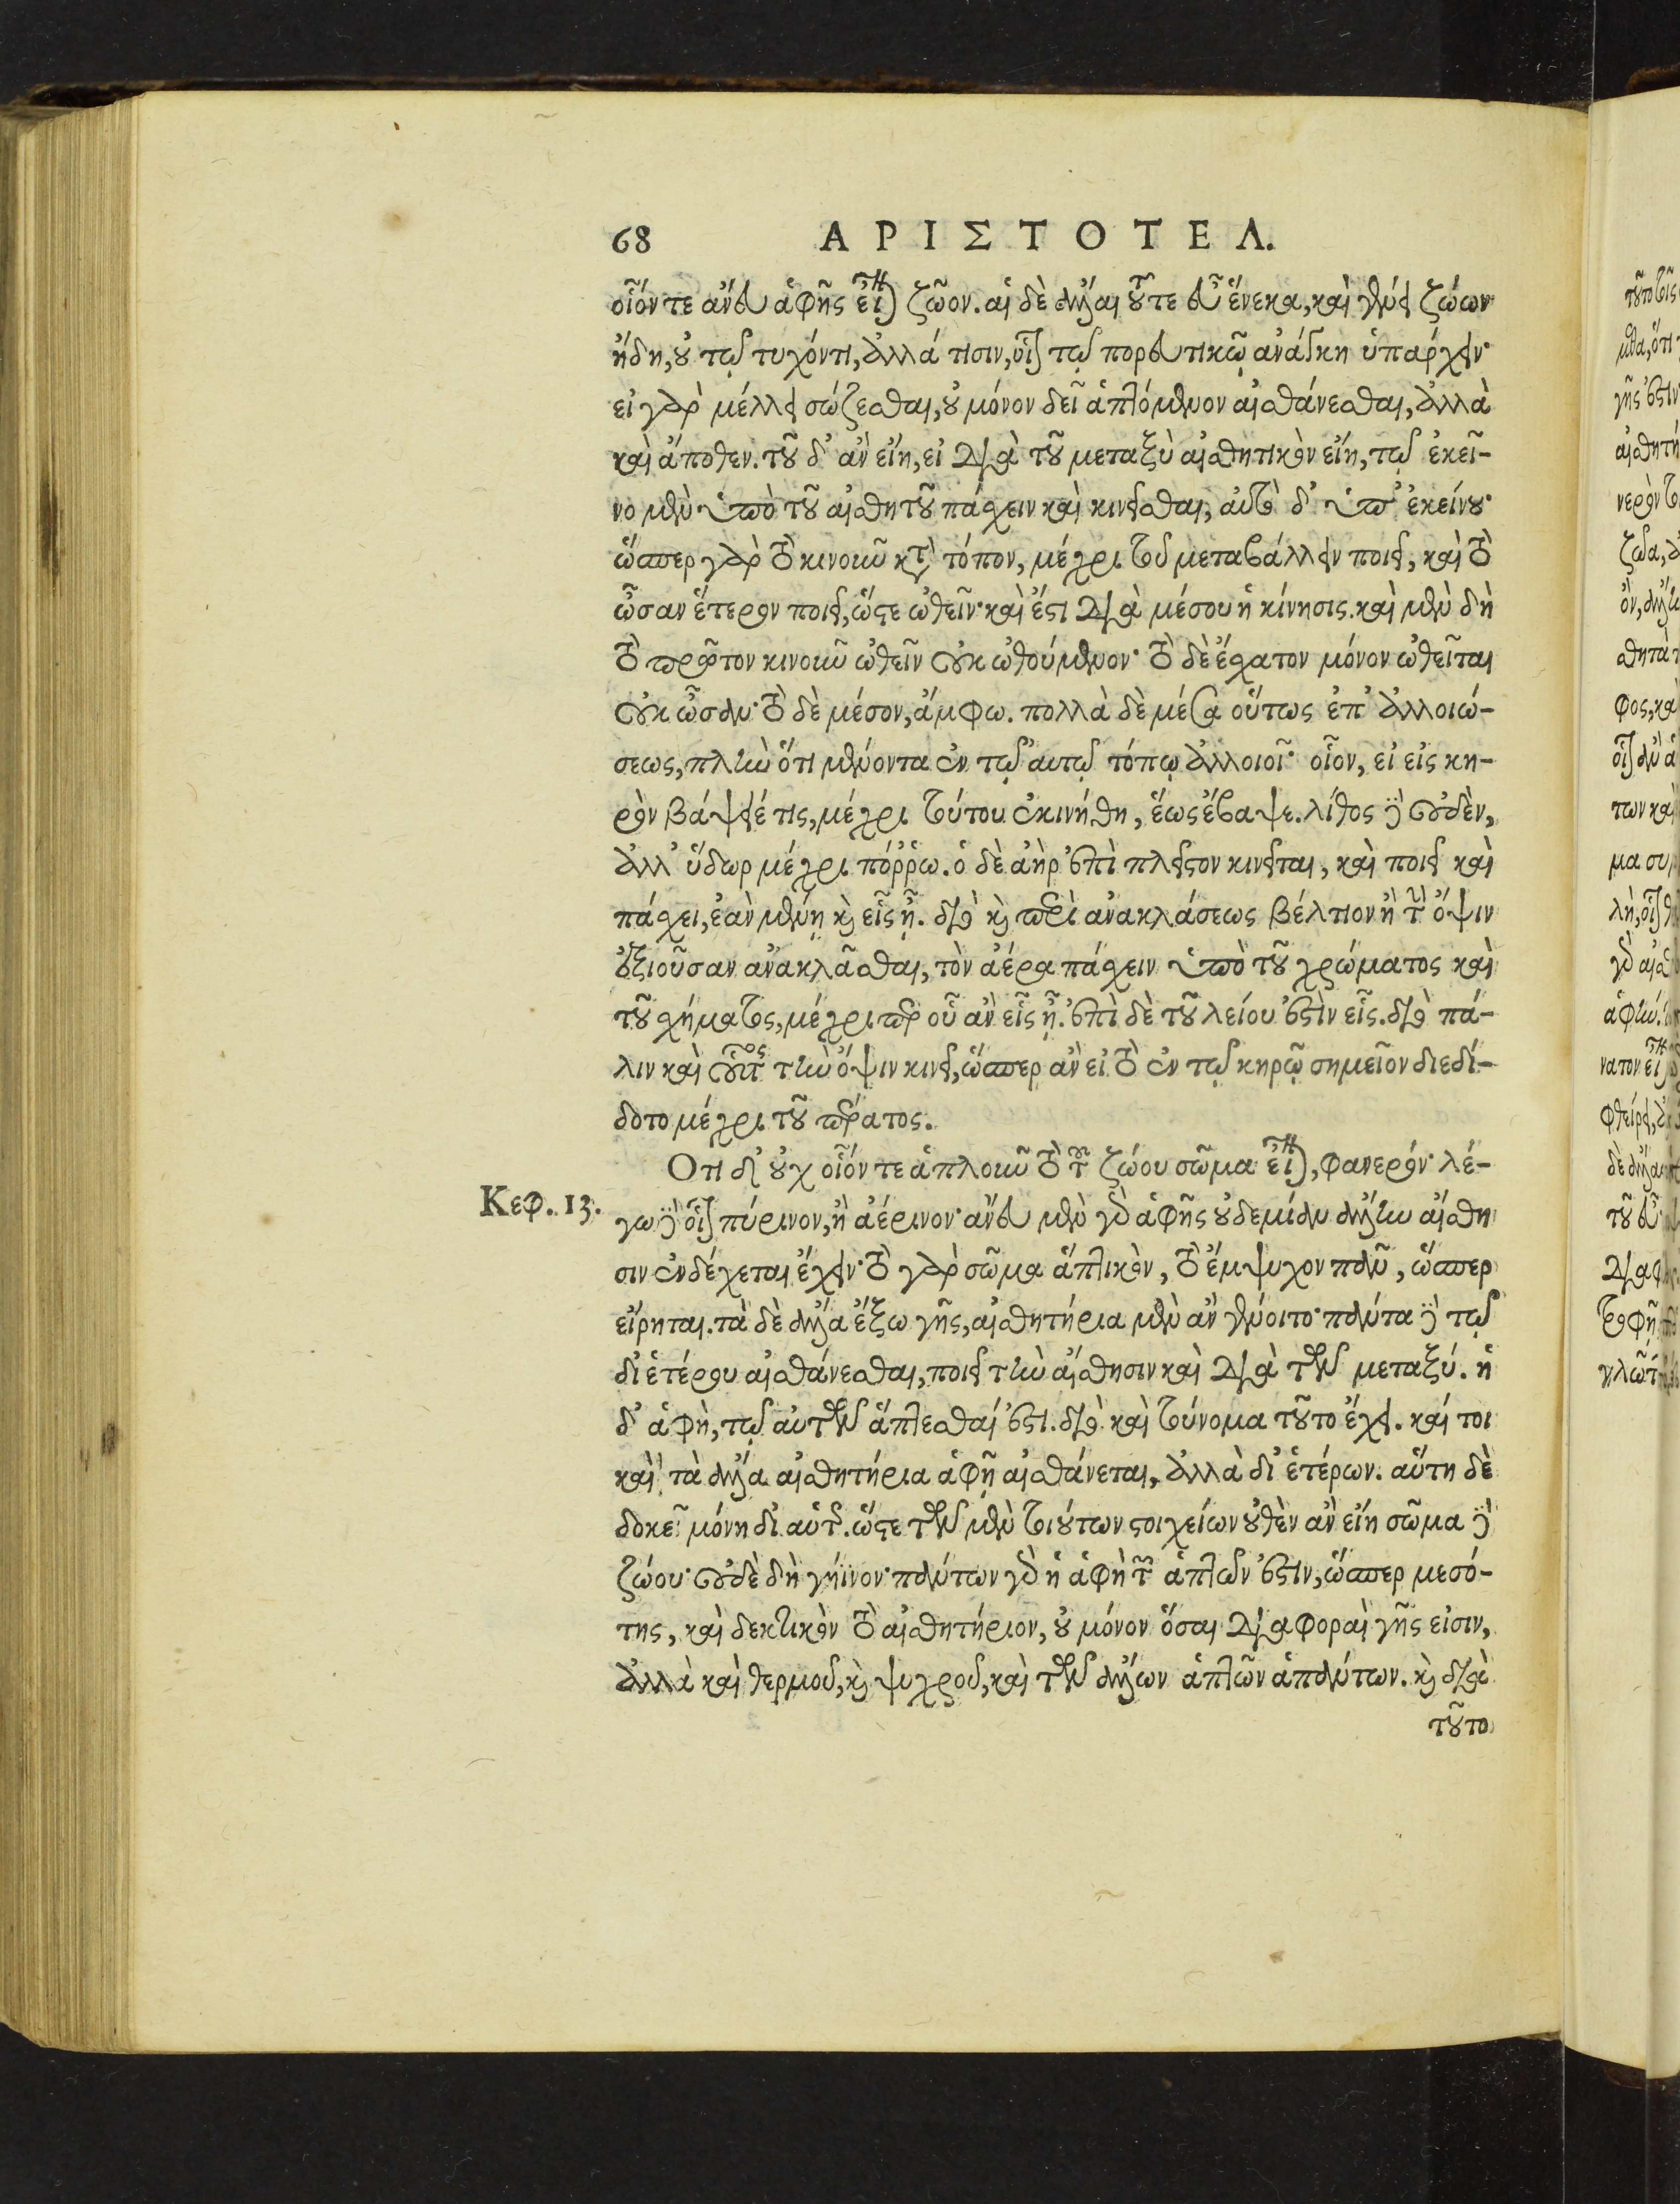 68 ΑΡΙΣΤΟΤΕΛ.
οἷόν τε ἄνευ ἁφῆς εἶναι ζῶον. αἱ δὲ ἄλλαι τοῦ τε εὖ ἕνεκα, καὶ γένει ζώων
ἤδη, οὐ τῷ τυχόντι, ἀλλά τισιν, οἷον τῷ πορευτικῷ ἀνάγκη ὑπάρχειν·
εἰ γὰρ μέλλει σώζεσθαι, οὐ μόνον δεῖ ἁπτόμενον αἰσθάνεσθαι, ἀλλὰ
καὶ ἄποθεν. τοῦ δ' ἂν εἴη, εἰ διὰ τοῦ μεταξὺ αἰσθητικὸν εἴη, τῷ ἐκεῖ-
νο μὲν ὑπὸ τοῦ αἰσθητοῦ πάσχειν καὶ κινεῖσθαι, αὐτὸ δ' ὑπ' ἐκείνου·
ὥσπερ γὰρ τὸ κινοῦν κατὰ τόπον, μέχρι του μεταβάλλειν ποιεῖ, καὶ τὸ
ὦσαν ἕτερον ποιεῖ, ὥστε ὠθεῖν· καὶ ἔστι διὰ μέσου ἡ κίνησις. καὶ μὲν δὴ
τὸ πρῶτον κινοῦν ὠθεῖν οὐκ ὠθούμενον· τὸ δὲ ἔσχατον μόνον ὠθεῖται
οὐκ ὦσαν· τὸ δὲ μέσον, ἄμφω. πολλὰ δὲ μέσα οὕτως ἐπ' ἀλλοιώ-
σεως, πλὴν ὅτι μένοντα ἐν τῷ αυτῷ τόπῳ ἀλλοιοῖ· οἷον, εἰ εἰς κη-
ρὸν βάψειέ τις, μέχρι τούτου ἐκινήθη, ἕως ἔβαψε. λίθος δὲ οὐδὲν,
ἀλλ' ὕδωρ μέχρι πόῤῥω. ὁ δὲ ἀὴρ ἐπὶ πλεῖστον κινεῖται, καὶ ποιεῖ καὶ
πάσχει, ἐὰν μένῃ καὶ εἷς ᾖ. διὸ καὶ περὶ ἀνακλάσεως βέλτιον ἢ τὴν ὄψιν
ἐξιοῦσαν ἀνακλᾶσθαι, τὸν ἀέρα πάσχειν ὑπὸ τοῦ χρώματος καὶ
τοῦ σχήματος, μέχρι περ οὗ ἂν εἷς ᾖ. ἐπὶ δὲ τοῦ λείου ἐστὶν εἷς. διὸ πά-
λιν καὶ οὗτος τὴν ὄψιν κινεῖ, ὥσπερ ἂν εἰ τὸ ἐν τῷ κηρῷ σημεῖον διεδί-
δοτο μέχρι τοῦ πέρατος.
Κεφ. 13.
Οτι δ' οὐχ οἷόν τε ἁπλοῦν τὸ τοῦ ζώου σῶμα εἶναι, φανερόν· λέ-
γω δὲ οἷον πύρινον, ἢ ἀέρινον· ἄνευ μὲν γὰρ ἁφῆς οὐδεμίαν ἄλλην αἴσθη
σιν ἐνδέχεται ἔχειν· τὸ γὰρ σῶμα ἁπτικὸν, τὸ ἔμψυχον πᾶν, ὥσπερ
εἴρηται. τὰ δὲ ἄλλα ἔξω γῆς, αἰσθητήρια μὲν ἂν γένοιτο· πάντα δὲ τῷ
δι' ἑτέρου αἰσθάνεσθαι, ποιεῖ τὴν αἴσθησιν καὶ διὰ τῶν μεταξύ. ἡ
δ' ἁφὴ, τῷ αὐτῶν ἅπτεσθαί ἐστι. διὸ καὶ τοὔνομα τοῦτο ἔχει. καί τοι
καὶ τὰ ἄλλα αἰσθητήρια ἁφῇ αἰσθάνεται, ἀλλὰ δι' ἑτέρων. αὕτη δὲ
δοκεῖ μόνη δι' αὑτῆς. ὥστε τῶν μὲν τοιούτων στοιχείων οὐθὲν ἂν εἴη σῶμα δὲ
ζώου· οὐδὲ δὴ γήϊνον· πάντων γὰρ ἡ ἁφὴ τῶν ἁπτῶν ἐστὶν, ὥσπερ μεσό-
της, καὶ δεκτικὸν τὸ αἰσθητήριον, οὐ μόνον ὅσαι διαφοραὶ γῆς εἰσιν,
ἀλλὰ καὶ θερμοῦ, καὶ ψυχροῦ, καὶ τῶν ἄλλων ἁπτῶν ἁπάντων. καὶ διὰ
τοῦτο